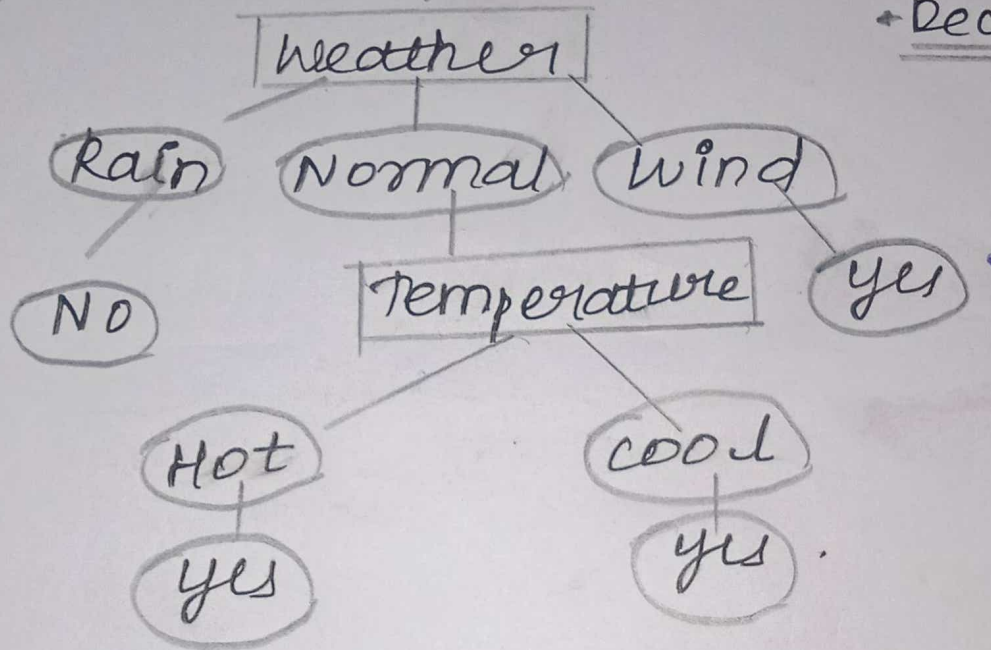 Weather
Rain Normal Wind
No Temperature yes
Hot cool
yes yes